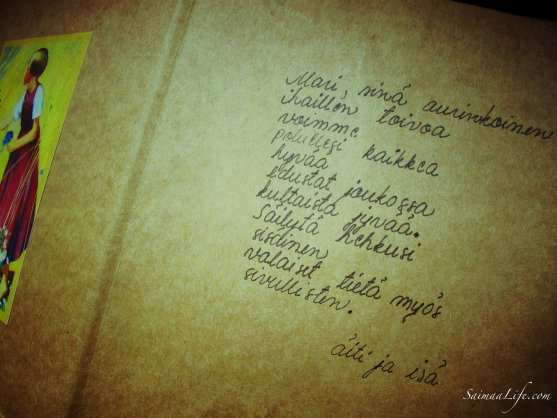 Mari, sinä aurinkoinen
ihaillen toivoa
voimme
polullesi kaikkea
hyvää
edustat joukossa
kultaista jyvää.
Säilytä hehkusi
sisäinen
valaiset tietä myös
sivullisten.
äiti ja isä
SaimaaLife.com